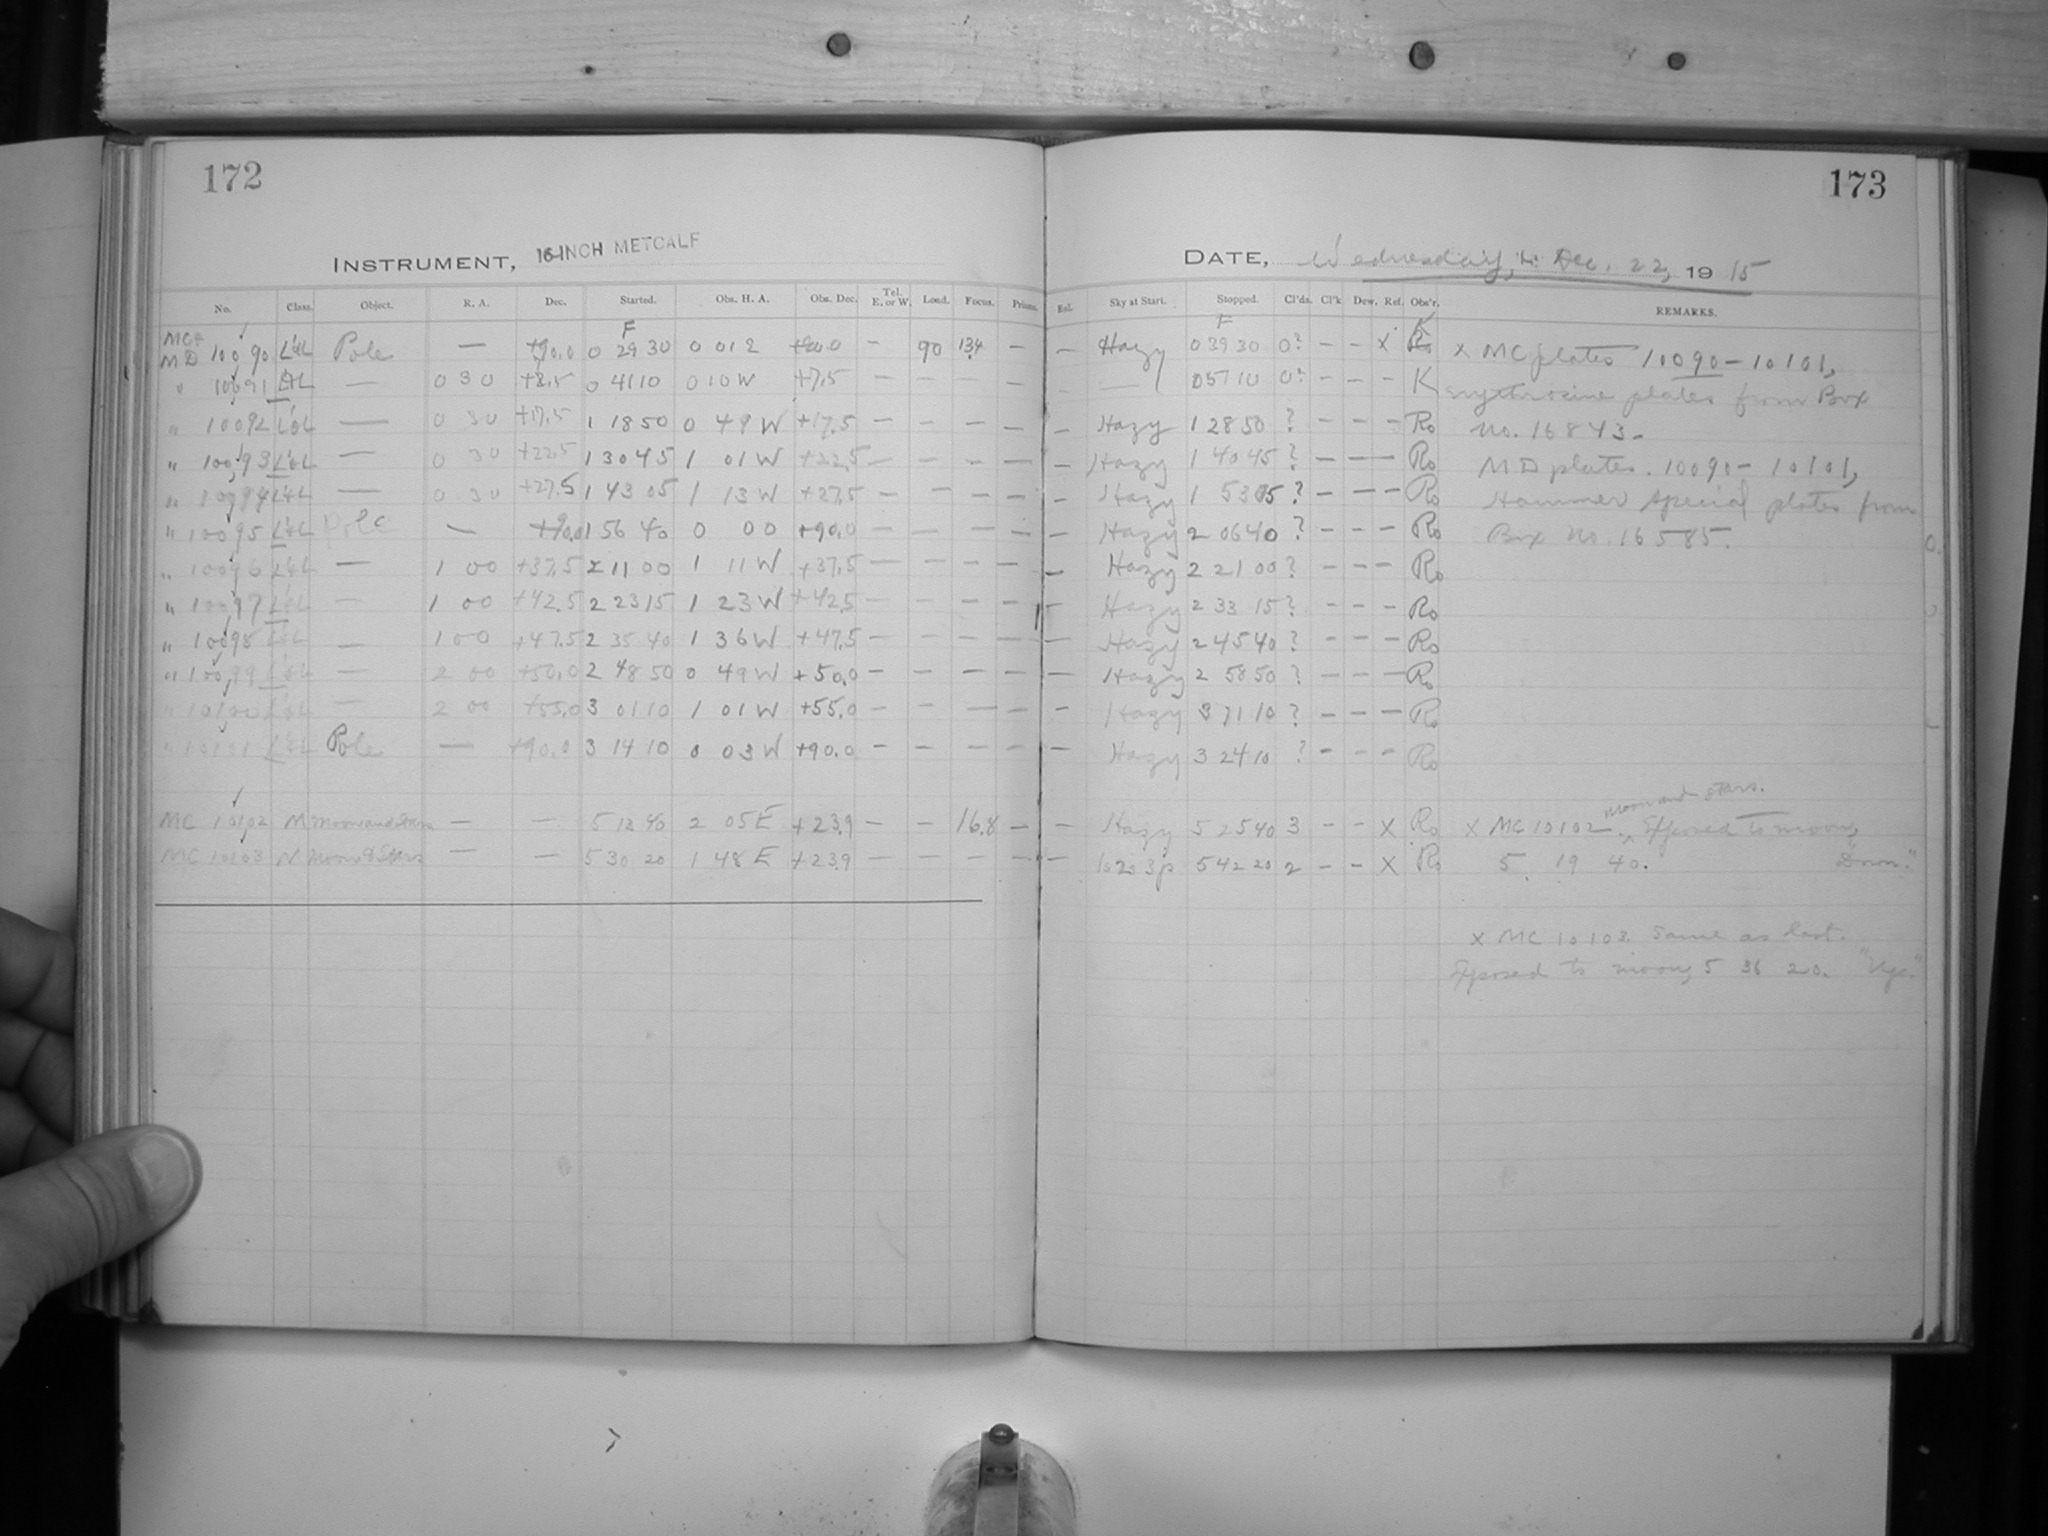 172
173
INSTRUMENT, 16-INCH METCALF
DATE, Wednesday, Dec. 22, 1915
No. Class. Object. R. A. Dec. Started. Obs. H. A. Obs. Dec. Tel. E. or W. Load. Focus. Prism. Eal. Sky at Start. Stopped. Cl'ds. Cl'k Dew. Ref. Obs'r. REMARKS.
F F K
MC & MD 10090 L&L Pole — +90.0 0 29 30 0 01 2 +90.0 — 90 13.4 — — Hazy 0 39 30 0? — — x Ro x MC plates 10090 – 10101,
" 10091 L&L — 0 30 +7.5 0 41 10 0 10 W +7.5 — — — — — — 0 51 10 0? — — — K erythrosine plates from Box
" 10092 L&L — 0 30 +17.5 1 18 50 0 49 W +17.5 — — — — — Hazy 1 28 50 ? — — — Ro No. 16843.
" 10093 L&L — 0 30 +22.5 1 30 45 1 01 W +22.5 — — — — — Hazy 1 40 45 ? — — — Ro MD plates. 10090 – 10101,
" 10094 L&L — 0 30 +27.5 1 43 05 1 13 W +27.5 — — — — — Hazy 1 53 05 ? — — — Ro Hammer Special plates from
" 10095 L&L Pole — +90.0 1 56 40 0 00 +90.0 — — — — — Hazy 2 06 40 ? — — — Ro Box No. 16585.
" 10096 L&L — 1 00 +37.5 2 11 00 1 11 W +37.5 — — — — — Hazy 2 21 00 ? — — — Ro
" 10097 L&L — 1 00 +42.5 2 23 15 1 23 W +42.5 — — — — — Hazy 2 33 15 ? — — — Ro
" 10098 L&L — 1 00 +47.5 2 35 40 1 36 W +47.5 — — — — — Hazy 2 45 40 ? — — — Ro
" 10099 L&L — 2 00 +50.0 2 48 50 0 49 W +50.0 — — — — — Hazy 2 58 50 ? — — — Ro
" 10100 L&L — 2 00 +55.0 3 01 10 1 01 W +55.0 — — — — — Hazy 3 11 10 ? — — — Ro
" 10101 L&L Pole — +90.0 3 14 10 0 03 W +90.0 — — — — — Hazy 3 24 10 ? — — — Ro
moon and stars.
MC 10102 M Moon and Stars — — 5 13 40 2 05 E +23.9 — — 16.8 — — Hazy 5 25 40 3 — — x Ro x MC 10102 Exposed to moon,
MC 10103 M Moon & Stars — — 5 30 20 1 48 E +23.9 — — — — — 5 42 20 2 — — x Ro 5 19 40. "Down."
x MC 10103. Same as last.
Exposed to moon, 5 36 20.